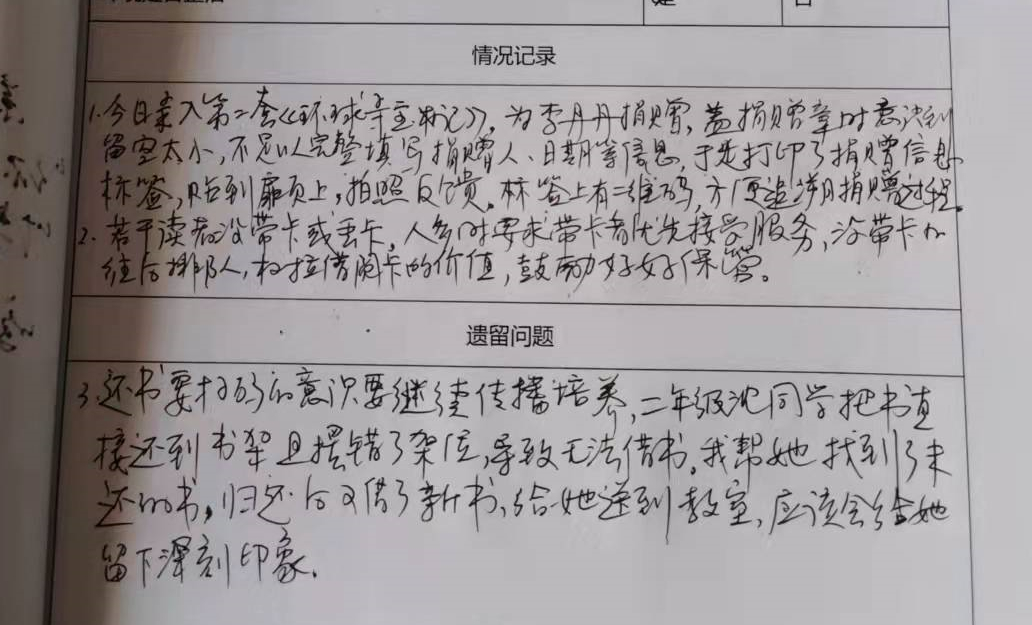 情况记录
1.今日录入第二套《环球寻宝记》，为李丹丹捐赠，盖捐赠章时意识到
留空太小，不足以完整填写捐赠人、日期等信息，于是打印了捐赠信息
标签，贴到扉页上，拍照反馈。标签上有二维码，方便追溯捐赠过程。
2.若干读者没带卡或丢卡，人多时要求带卡者优先接受服务，没带卡
往后排队，借阅卡的价值，鼓励好好保管。
遗留问题
3.还书要扫码的意识要继续传播培养，二年级沈同学把书直
接还到书架且摆错了架位，导致无法借书。我帮她找到了未
还的书，归还后又借了新书，给她送到教室，应该会给她
留下深刻印象。